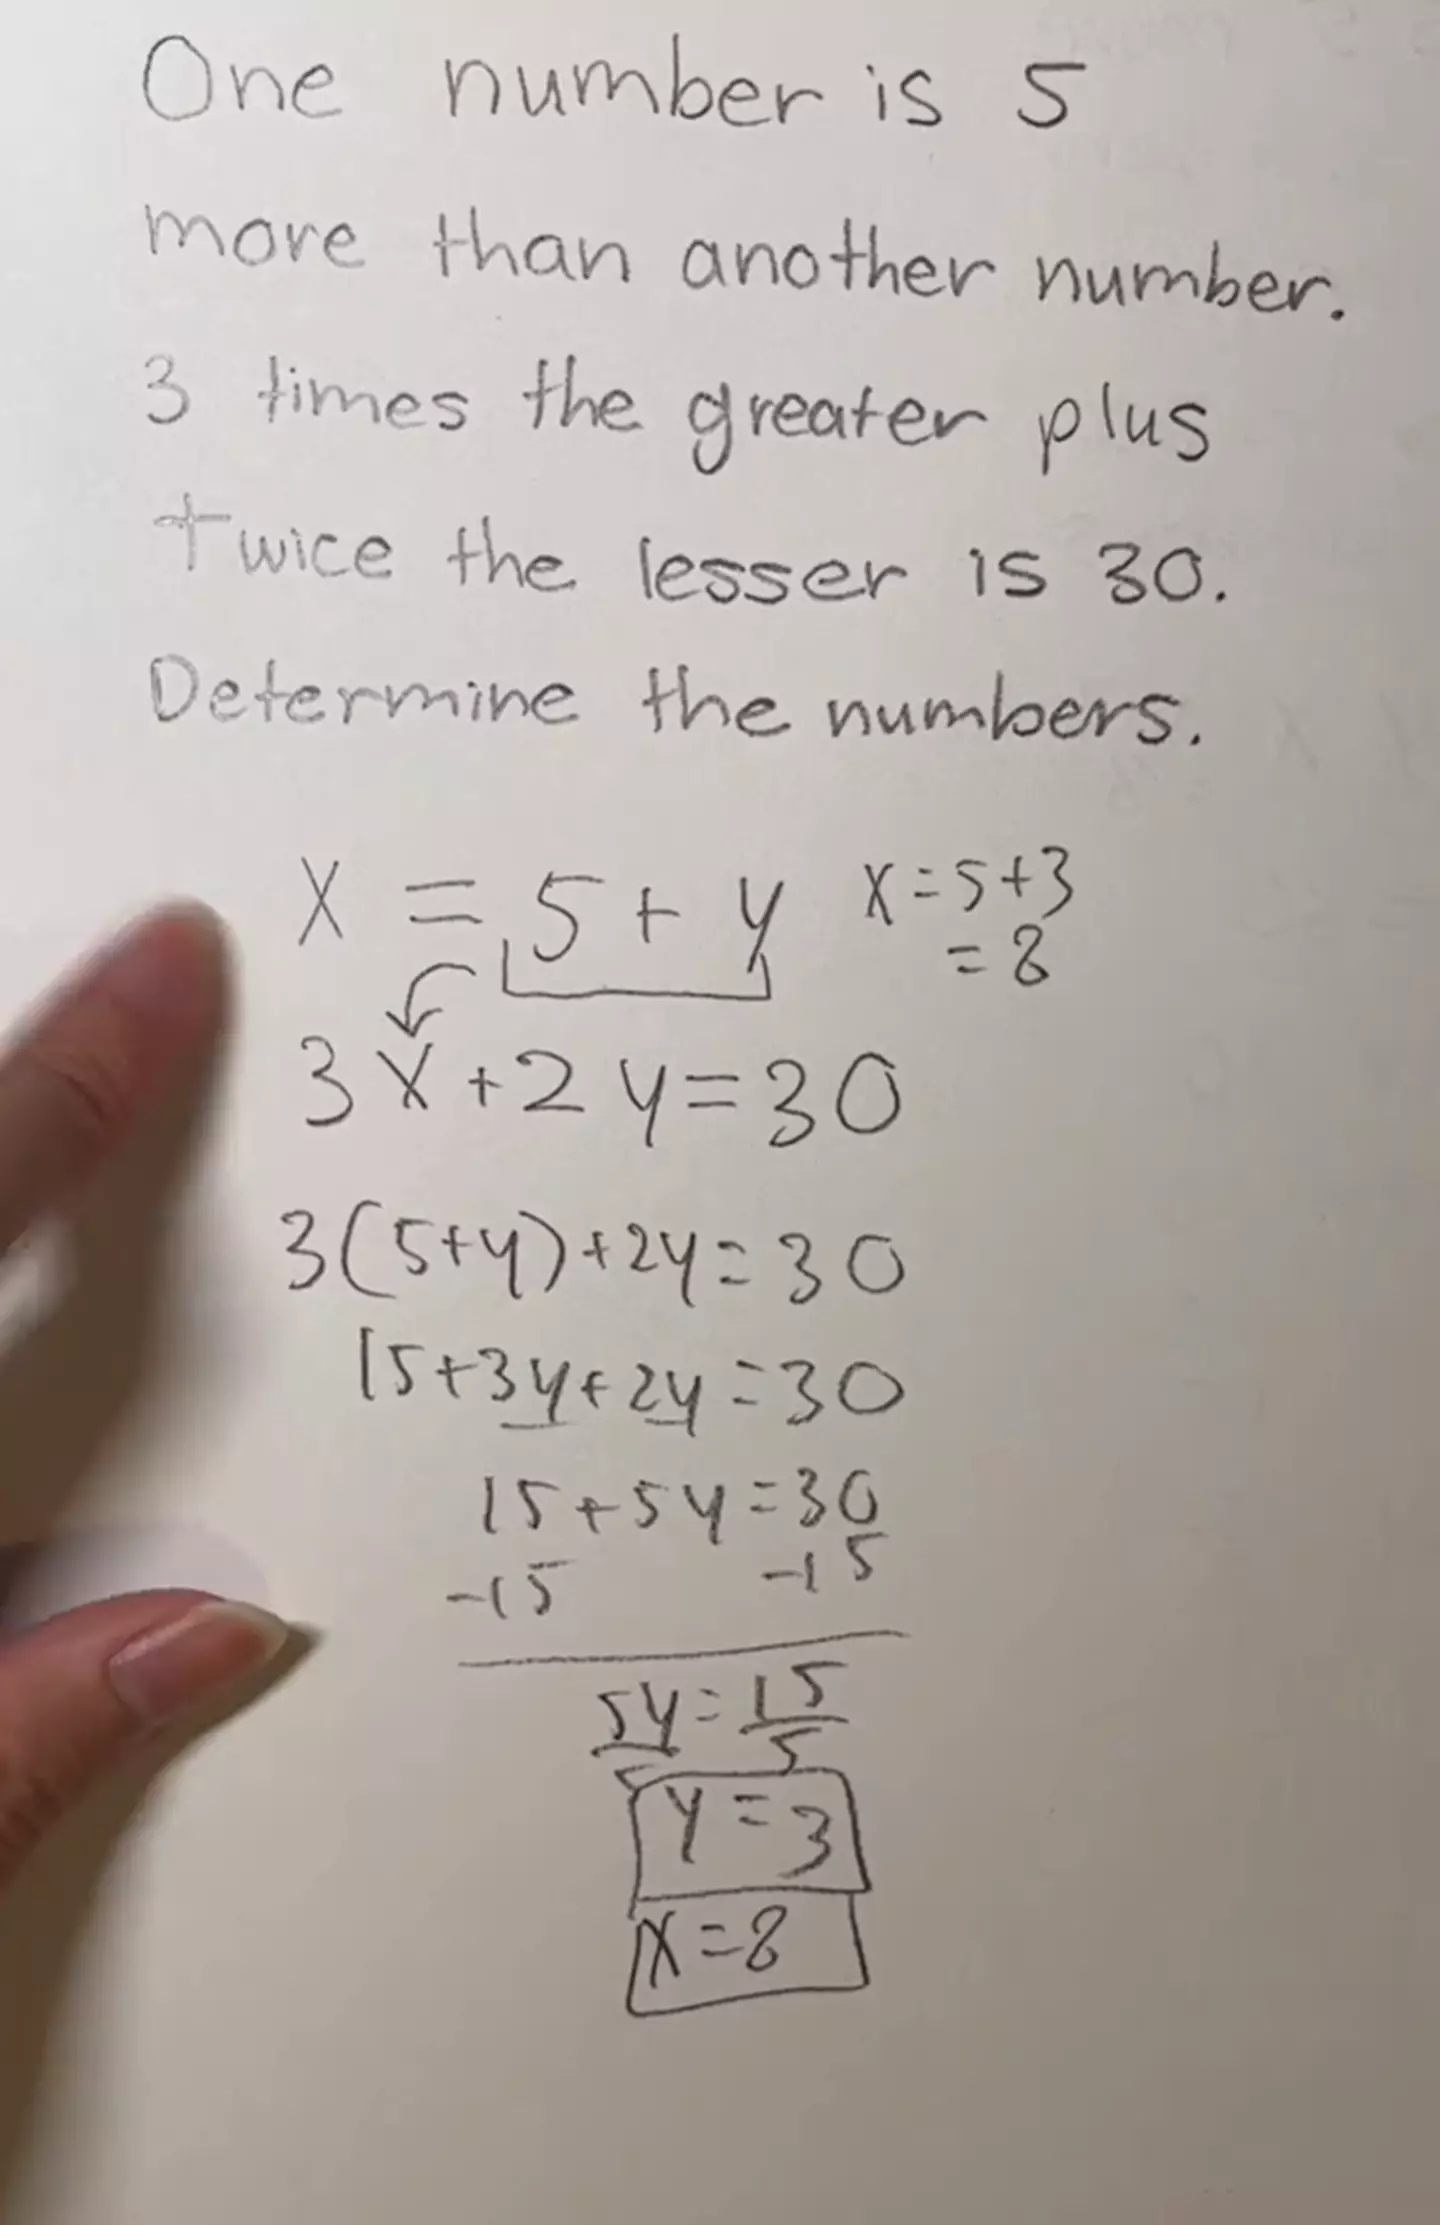 One number is 5
more than another number.
3 times the greater plus
twice the lesser is 30.
Determine the numbers.
x = 5 + y
x = 5 + 3
= 8
3x + 2y = 30
3(5+y) + 2y = 30
15 + 3y + 2y = 30
15 + 5y = 30
-15 -15
5y = 15
5 5
y = 3
x = 8